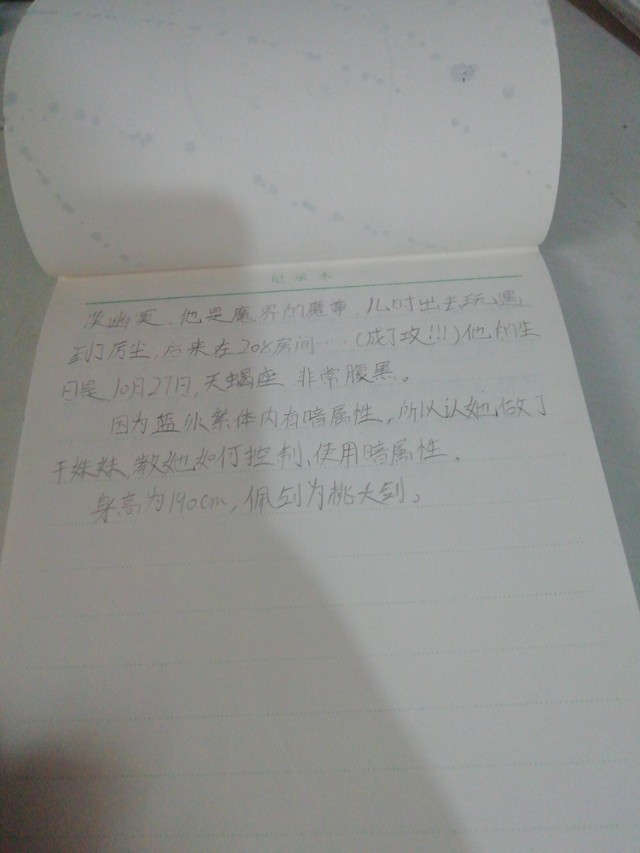 记录本
幽冥，他是魔界的魔帝，儿时出去玩遇
到了厉尘，后来在208房间……(成了攻!!!)他的生
日是10月27日，天蝎座 非常腹黑。
因为蓝小紫体内有暗属性，所以认她做了
干妹妹，教她如何控制、使用暗属性。
身高为190cm，佩剑为桃夭剑。